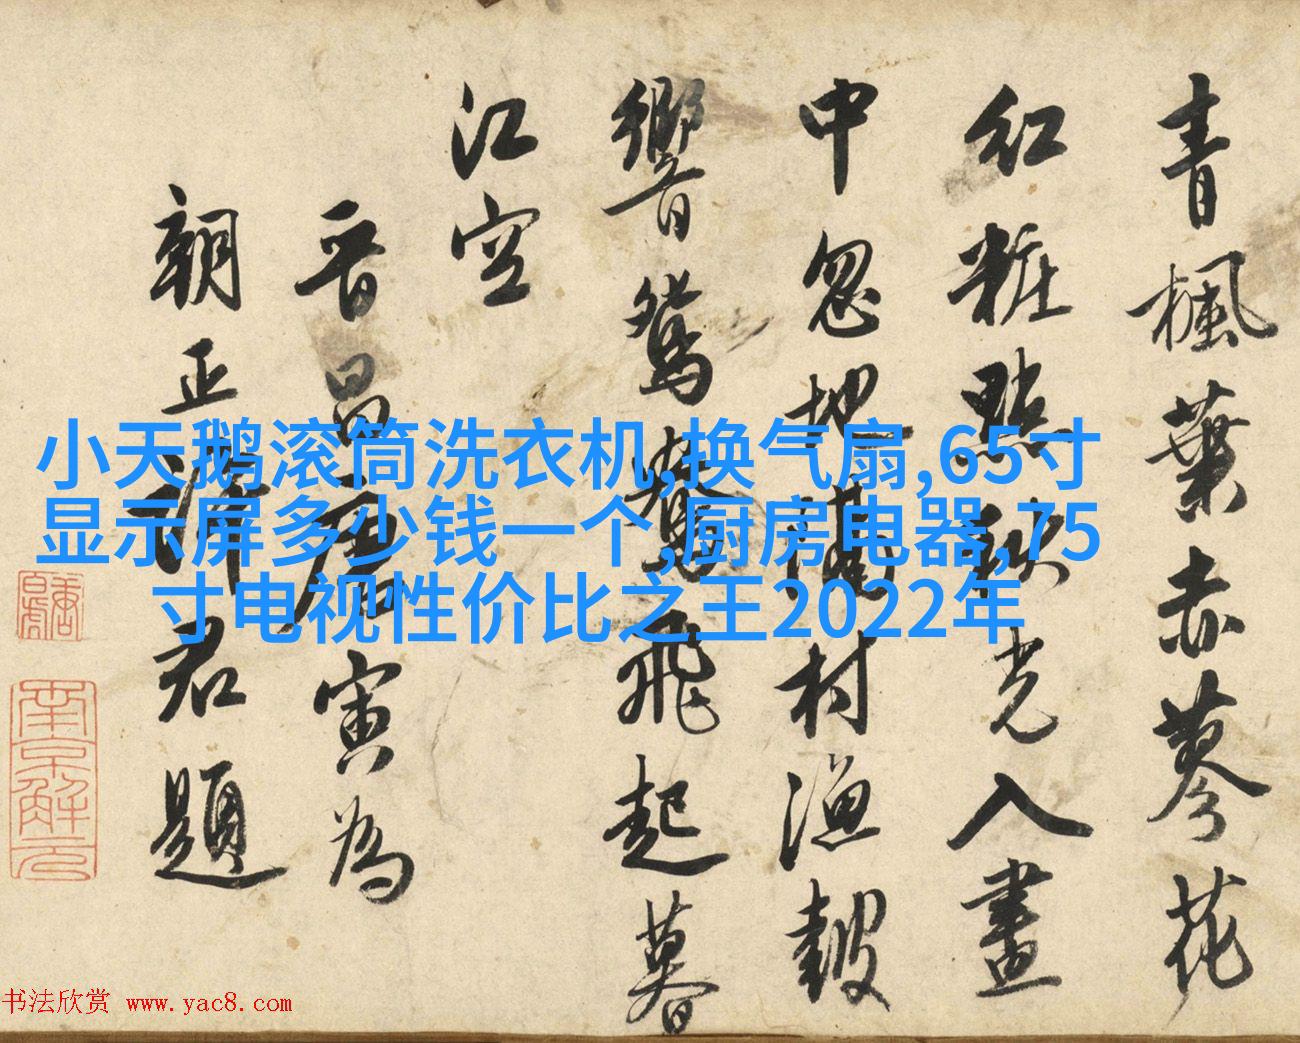 青楓葉赤蓼花
紅粧點秋光入畫
中忽地村漁皷
響鴛鴦飛起暮
江空
晉昌唐寅為
朝正君題
南京解元
小天鹅滚筒洗衣机,换气扇,65寸
显示屏多少钱一个,厨房电器,75
寸电视性价比之王2022年
书法欣赏 www.yac8.com